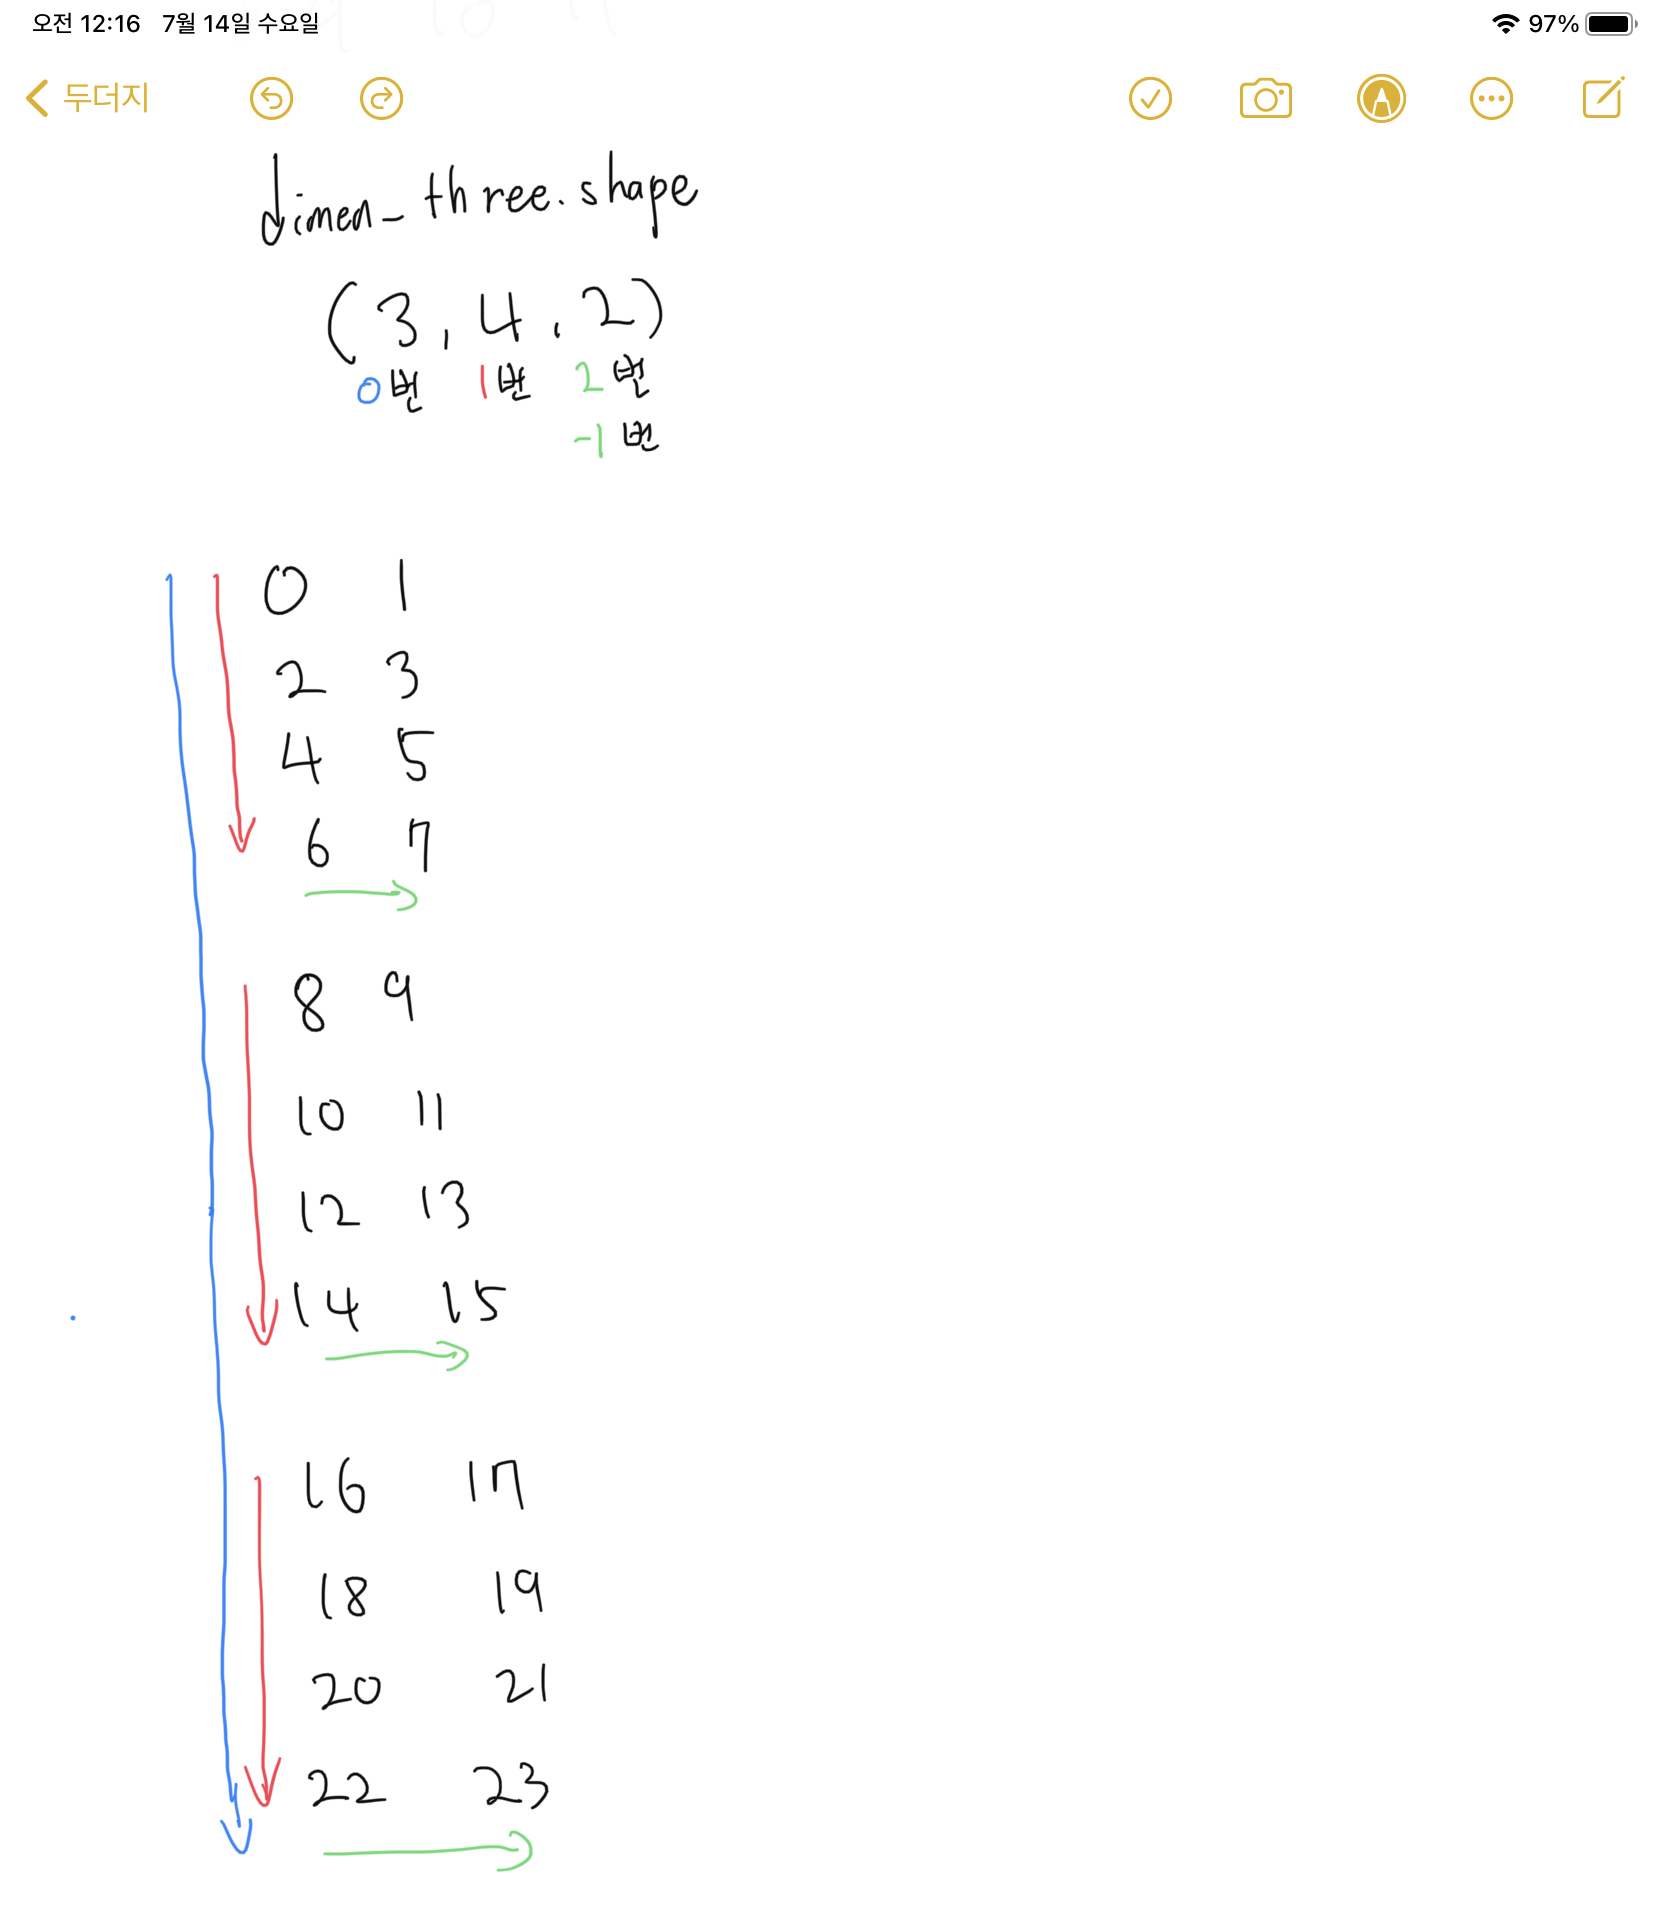 오전 12:16 7월 14일 수요일 97%
두더지
dimen_three.shape
(3, 4, 2)
0번 1번 2번
-1번
0 1
2 3
4 5
6 7
8 9
10 11
12 13
14 15
16 17
18 19
20 21
22 23